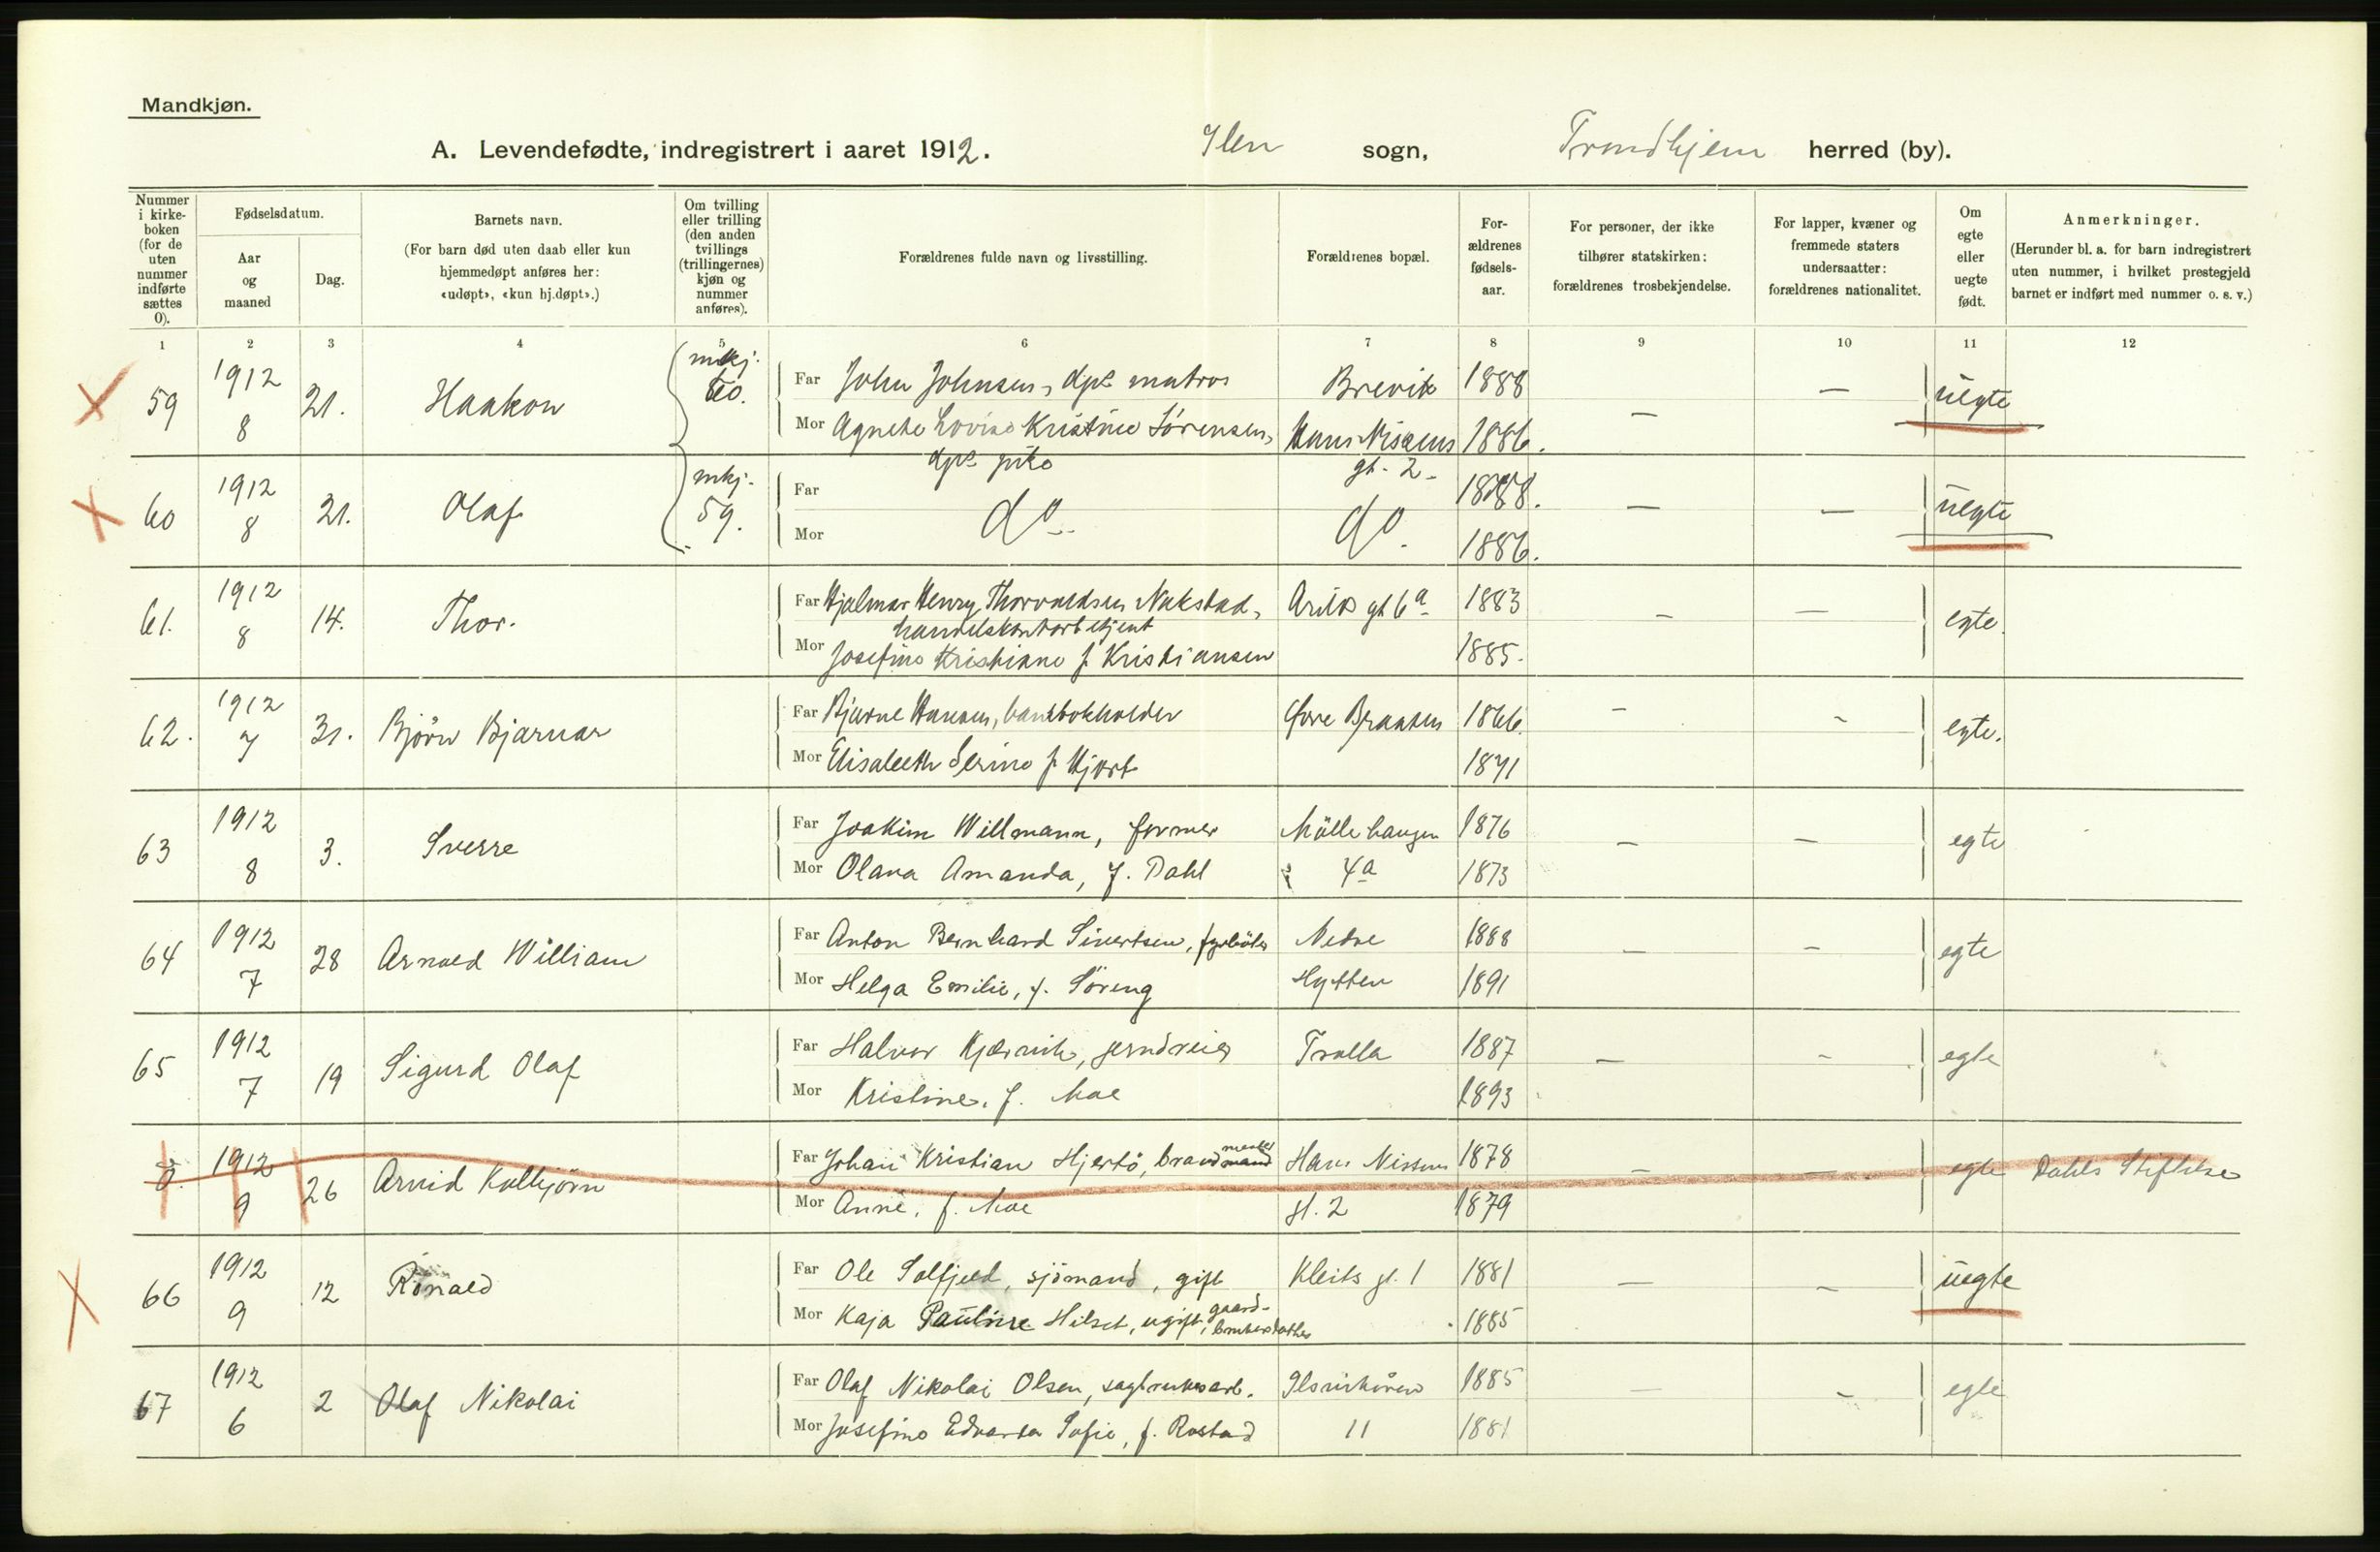 Mandkjøn.
A. Levendefødte, indregistrert i aaret 1912. Ilen sogn, Trondhjem herred (by).
Nummer i kirke-boken (for de uten nummer indførte sættes 0).
Fødselsdatum.
Aar og maaned
Dag.
Barnets navn.
(For barn død uten daab eller kun hjemmedøpt anføres her: «udøpt», «kun hj.døpt».)
Om tvilling eller trilling (den anden tvillings (trillingernes) kjøn og nummer anføres).
Forældrenes fulde navn og livsstilling.
Forældrenes bopæl.
For-ældrenes fødsels-aar.
For personer, der ikke tilhører statskirken: forældrenes trosbekjendelse.
For lapper, kvæner og fremmede staters undersaatter: forældrenes nationalitet.
Om egte eller uegte født.
Anmerkninger.
(Herunder bl. a. for barn indregistrert uten nummer, i hvilket prestegjeld barnet er indført med nummer o. s. v.)
1 2 3 4 5 6 7 8 9 10 11 12
59 1912 8 21. Haakon mkj. 60. Far John Johnsen, matros Brevik 1888 — — uegte
Mor Agnete Lovise Kristine Sørensen, Hans Nissens gt. 2 1886.
60 1912 8 21. Olaf mkj. 59. Far do do. 1888. — — uegte
Mor 1886.
61. 1912 8 14. Thor. Far Hjalmar Henry Thorvaldsen Nakstad, Arilds gt 6a 1883 — — egte.
Mor Josefine Kristiane f. Kristiansen 1885.
62. 1912 7 31. Bjørn Bjarnar Far Bjarne Hansen, bankbokholder øvre Braaten 1866. — — egte.
Mor Elisabeth Serine f. Hjort 1871
63 1912 8 3. Sverre Far Joakim Willmann, former Møllebaugen 1876 — — egte
Mor Olava Amanda, f. Dahl 4a 1873
64 1912 7 28 Arnold William Far Anton Bernhard Sivertsen, fyrbøter Nedre 1888 — — egte
Mor Helga Emilie, f. Søreng Hytten 1891
65 1912 7 19 Sigurd Olaf Far Halvor Kjærvik, jerndreier Trolla 1887 — — egte
Mor Kristine, f. Moe 1893
0. 1912 9 26 Arvid Kolbjørn Far Johan Kristian Hjertø, Hans Nissens 1878 — — egte Dahls Stiftelse
Mor Anne, f. Moe gt. 2 1879
66 1912 9 12 Ronald Far Ole Solfjeld, sjømand, gift Kleists gt. 1 1881 — — uegte
Mor Kaja Pauline Hilset, ugift, gaard-brukerdatter 1885
67 1912 6 2 Olaf Nikolai Far Olaf Nikolai Olsen, sagbruksarb. Ilsvikøren 1885 — — egte
Mor Josefine Edvarda Sofie, f. Rostad 11 1881